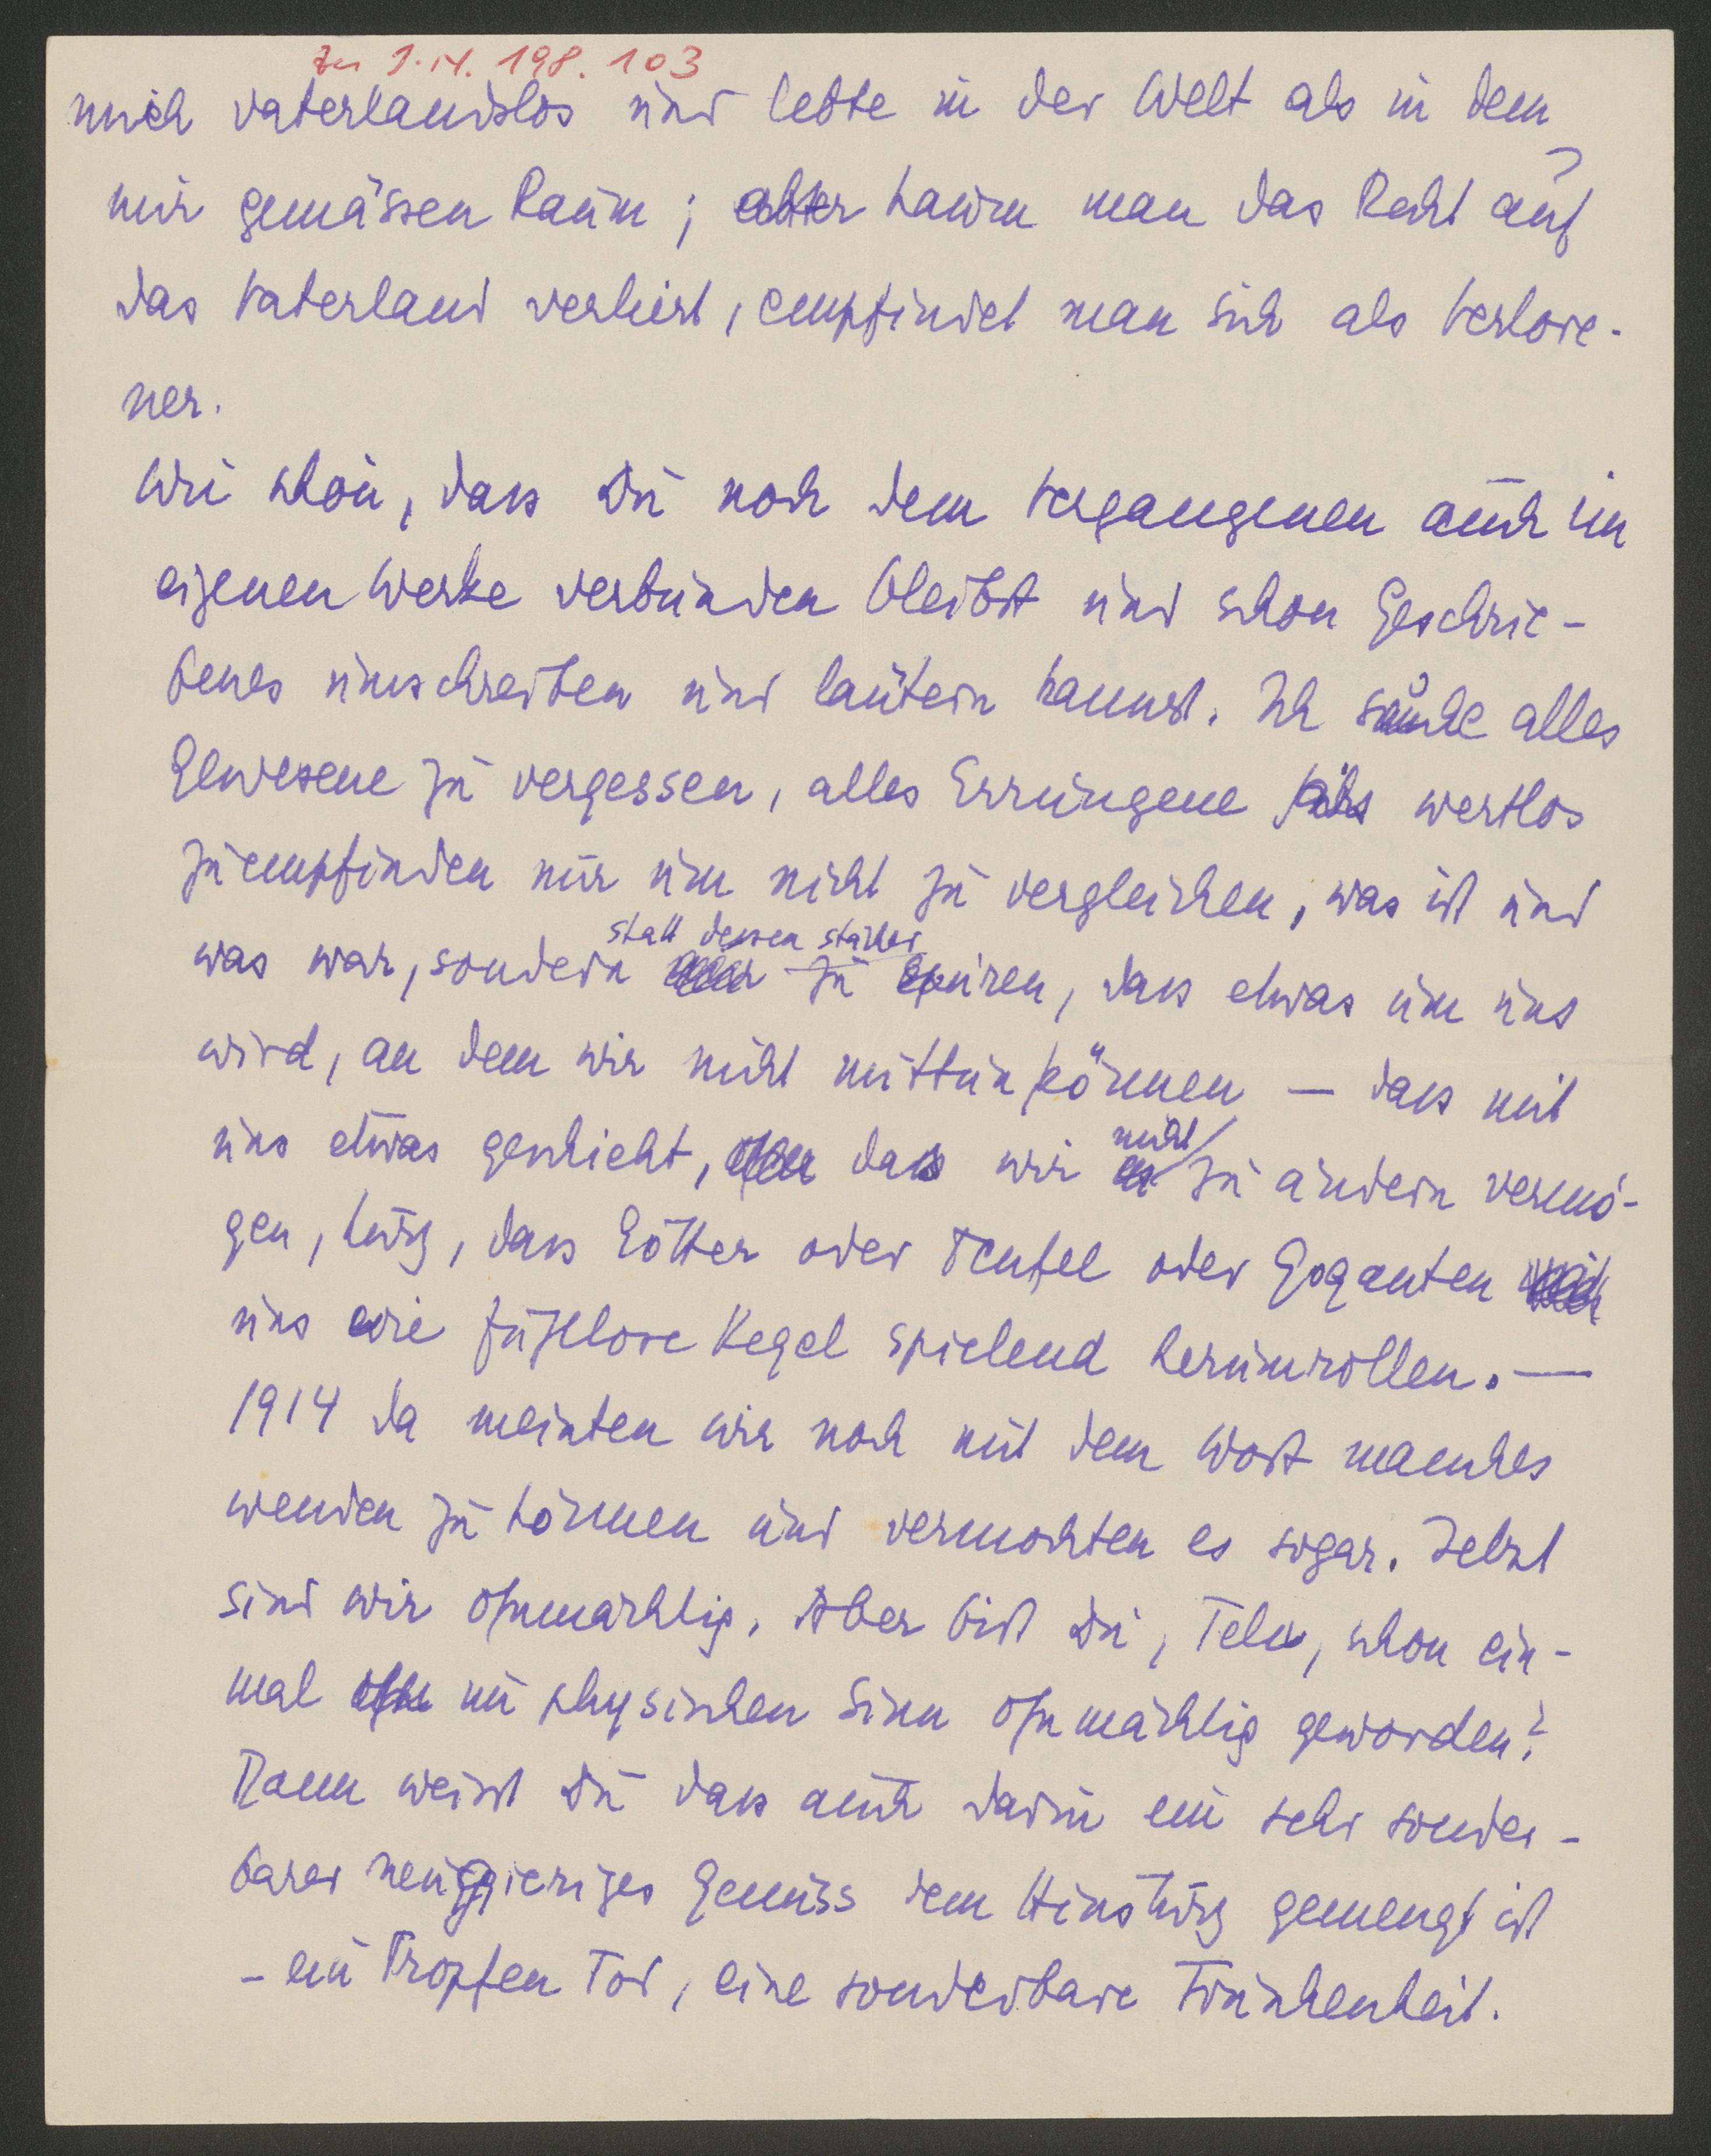 zu I.N. 198.103
mich vaterlandslos und lebte in der Welt als in dem
mir gemässen Raum; aber kaum man das Recht auf
das Vaterland verliert, empfindet man sich als Verlore-
ner.
Wie schön, dass Du noch dem Vergangenen auch im
eigenen Werke verbunden bleibst und schon Geschrie-
benes umschreiben und läutern kannst. Ich suche alles
Gewesene zu vergessen, alles Errungene als wertlos
zu empfinden nur um nicht zu vergleichen, was ist und
was war, sondern statt dessen stärker zu spüren, dass etwas um uns
wird, an dem wir nicht mittun können – dass mit
uns etwas geschieht, das wir nicht zu ändern vermö-
gen, kurz, dass Götter oder Teufel oder Goganten
uns wie fühllose Kegel spielend herumrollen. —
1914 da meinten wir noch mit dem Wort manches
wenden zu können und vermochten es sogar. Jetzt
sind wir ohnmächtig. Aber bist Du, Felix, schon ein-
mal im physischen Sinn ohnmächtig geworden?
Dann weisst Du dass auch darin ein sehr sonder-
barer neugieriges Genuss dem Hinsturz gemengt ist
– ein Tropfen Tod, eine sonderbare Trunkenheit.